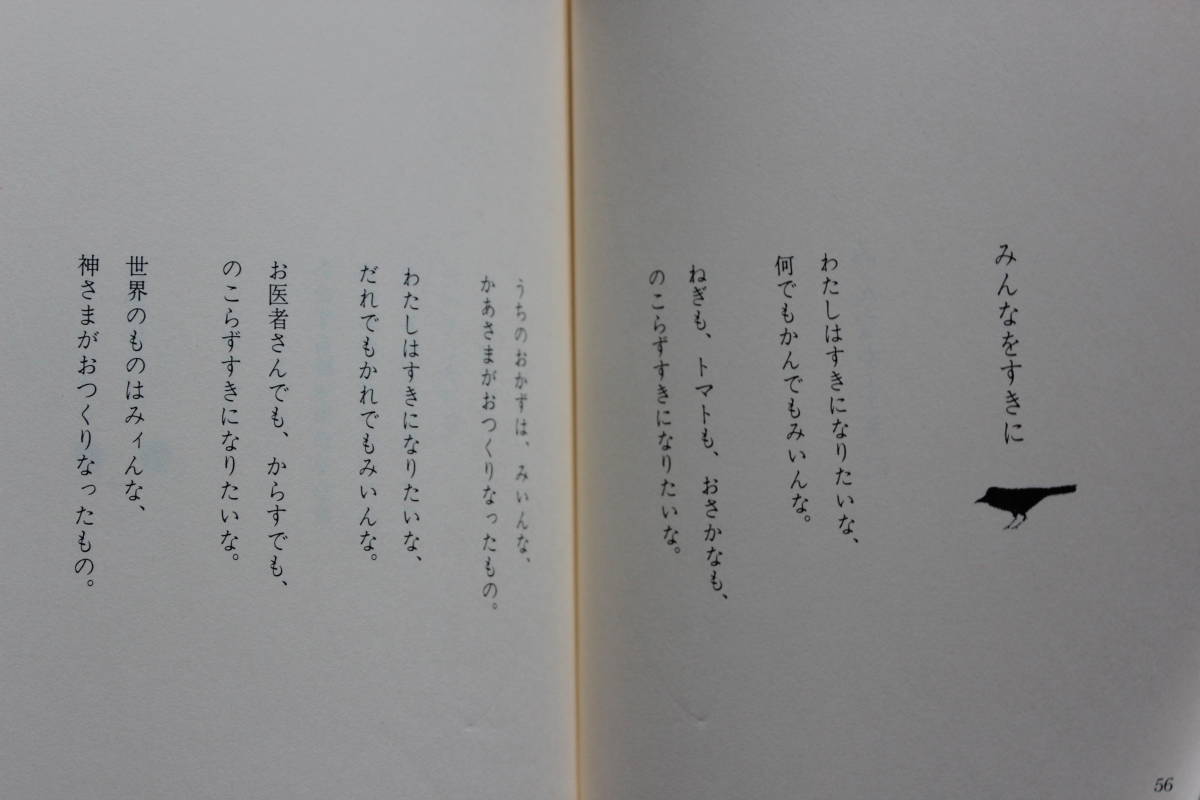 みんなをすきに
わたしはすきになりたいな、
何でもかんでもみいんな。
ねぎも、トマトも、おさかなも、
のこらずすきになりたいな。
うちのおかずは、みいんな、
かあさまがおつくりなったもの。
わたしはすきになりたいな、
だれでもかれでもみいんな。
お医者さんでも、からすでも、
のこらずすきになりたいな。
世界のものはみィんな、
神さまがおつくりなったもの。
56